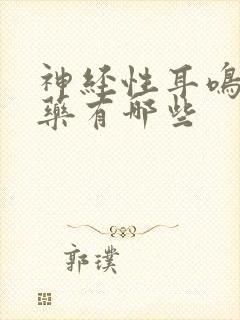 神经性耳鸣
藥有哪些
郭璞